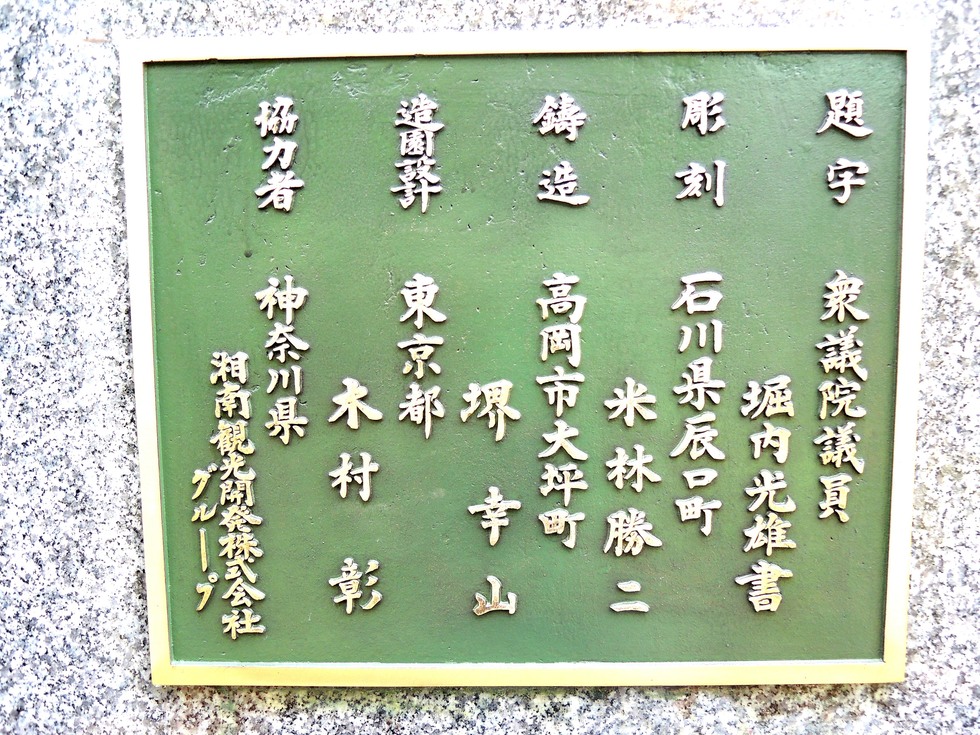 題字 衆議院議員
堀内光雄書
彫刻 石川県辰口町
米林勝二
鋳造 高岡市大坪町
堺幸山
造園設計 東京都
木村彰
協力者 神奈川県
湘南観光開発株式会社
グループ